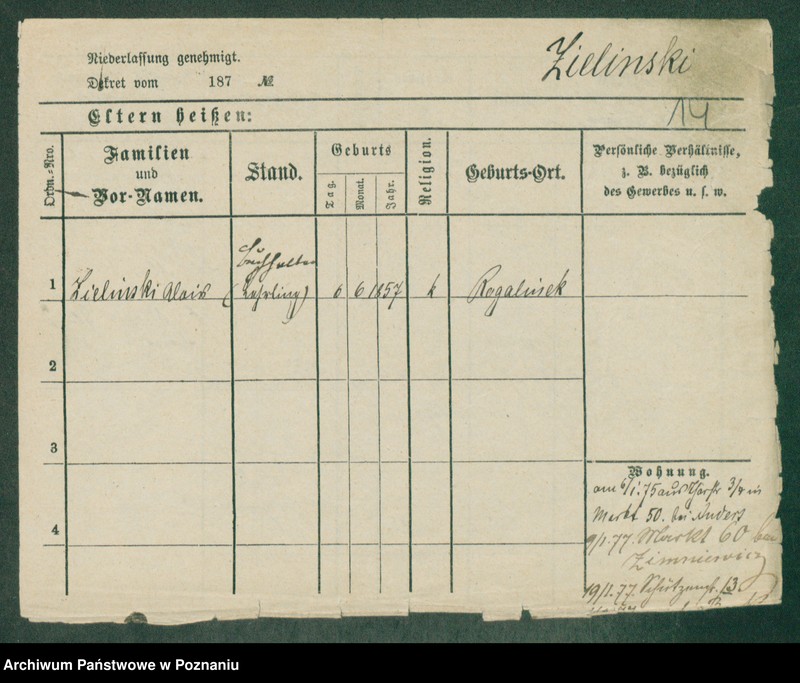 Niederlassung genehmigt.
Dekret vom 187 №
Zielinski
14
Eltern heißen:
Ordn.-Nro.
Familien
und
Vor-Namen.
Stand.
Geburts
Tag.
Monat.
Jahr.
Religion.
Geburts-Ort.
Persönliche Verhältnisse,
z. B. bezüglich
des Gewerbes u. s. w.
1 Zielinski Alois (Lehrling) 6 6 1857 k Rogalinek
2
3
4
Wohnung.
am 6/1.75 aus 3/4 in
Markt 50. bei Anders
9/1.77. Markt 60 bei
Zimniewicz
19/1.77. Schützenst. 13